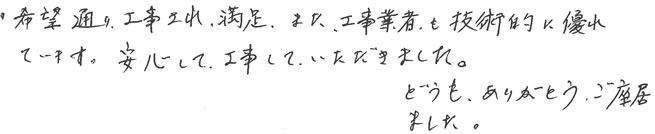 ・希望通り、工事され、満足、また、工事業者も技術的に優れ
ています。安心して、工事して、いただきました。
どうも、ありがとう、ご座居
ました。